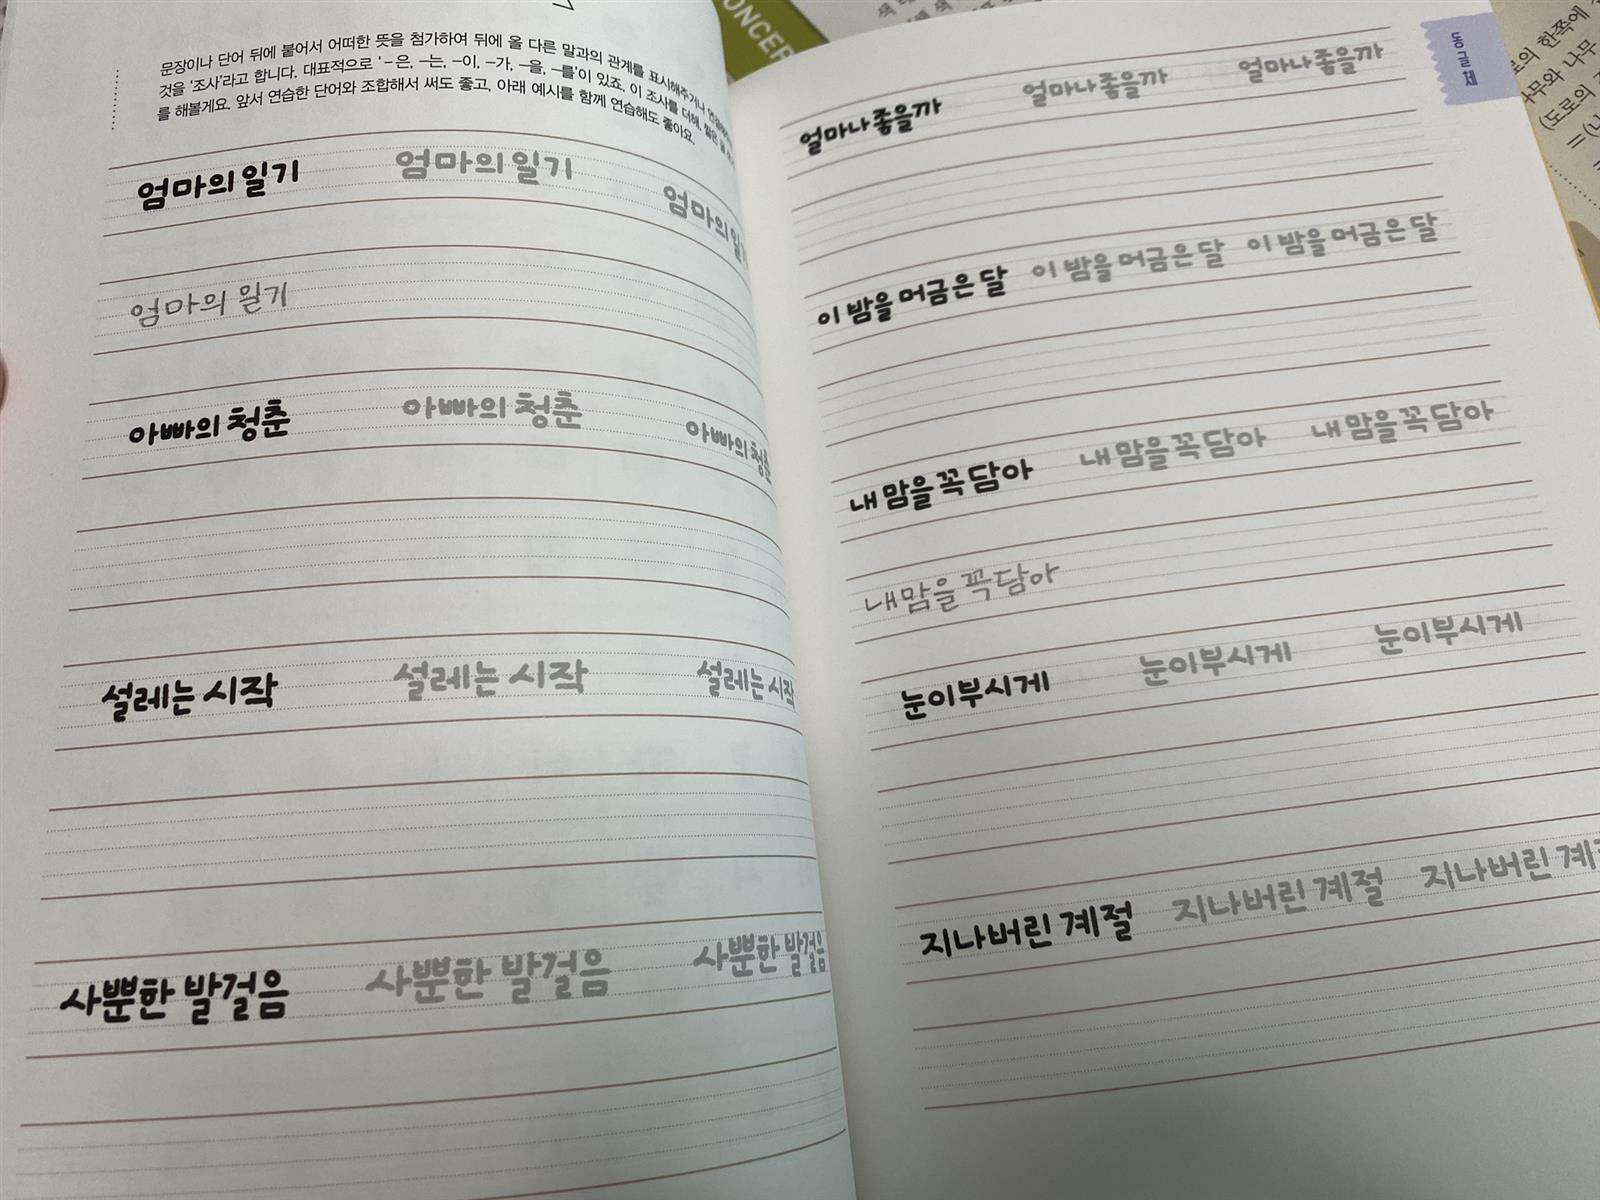 문장이나 단어 뒤에 붙어서 어떠한 뜻을 첨가하여 뒤에 올 다른 말과의 관계를 표시해주거나
것을 '조사'라고 합니다. 대표적으로 '-은, -는, -이, -가, -을, -를'이 있죠. 이 조사를 더해, 짧은
를 해볼게요. 앞서 연습한 단어와 조합해서 써도 좋고, 아래 예시를 함께 연습해도 좋아요.
엄마의 일기 엄마의 일기 엄마의 일기
엄마의 일기
아빠의 청춘 아빠의 청춘 아빠의 청춘
설레는 시작 설레는 시작 설레는 시작
사뿐한 발걸음 사뿐한 발걸음 사뿐한 발걸음
동글체
얼마나 좋을까 얼마나 좋을까 얼마나 좋을까
이 밤을 머금은 달 이 밤을 머금은 달 이 밤을 머금은 달
내 맘을 꼭 담아 내 맘을 꼭 담아 내 맘을 꼭 담아
내 맘을 꼭 담아
눈이 부시게 눈이 부시게 눈이 부시게
지나버린 계절 지나버린 계절 지나버린
ONCER
한쪽에
나무와 나무
(도로의